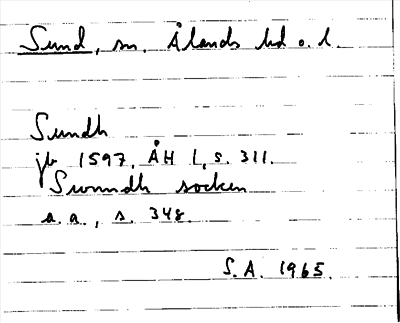 Sund, sn. Ålands hd o. l.
Sundh
jb 1597, ÅH I, s. 311.
Swnndh socken
a.a., s. 348.
S.A. 1965.